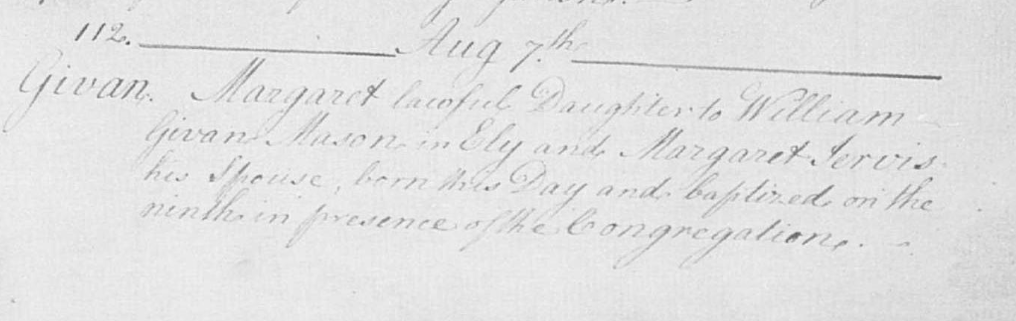 112. Aug 7.th
Givan. Margaret lawful Daughter to William
Givan Mason in Ely and Margaret Jervis
his Spouse, born this Day and baptized on the
ninth in presence of the Congregation.